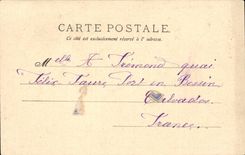 CARTE POSTALE
Ce côté est exclusivement réservé à l'adresse.
Mdlle A Frémond quai
Félix Faure Port en Bessin
Calvados
France